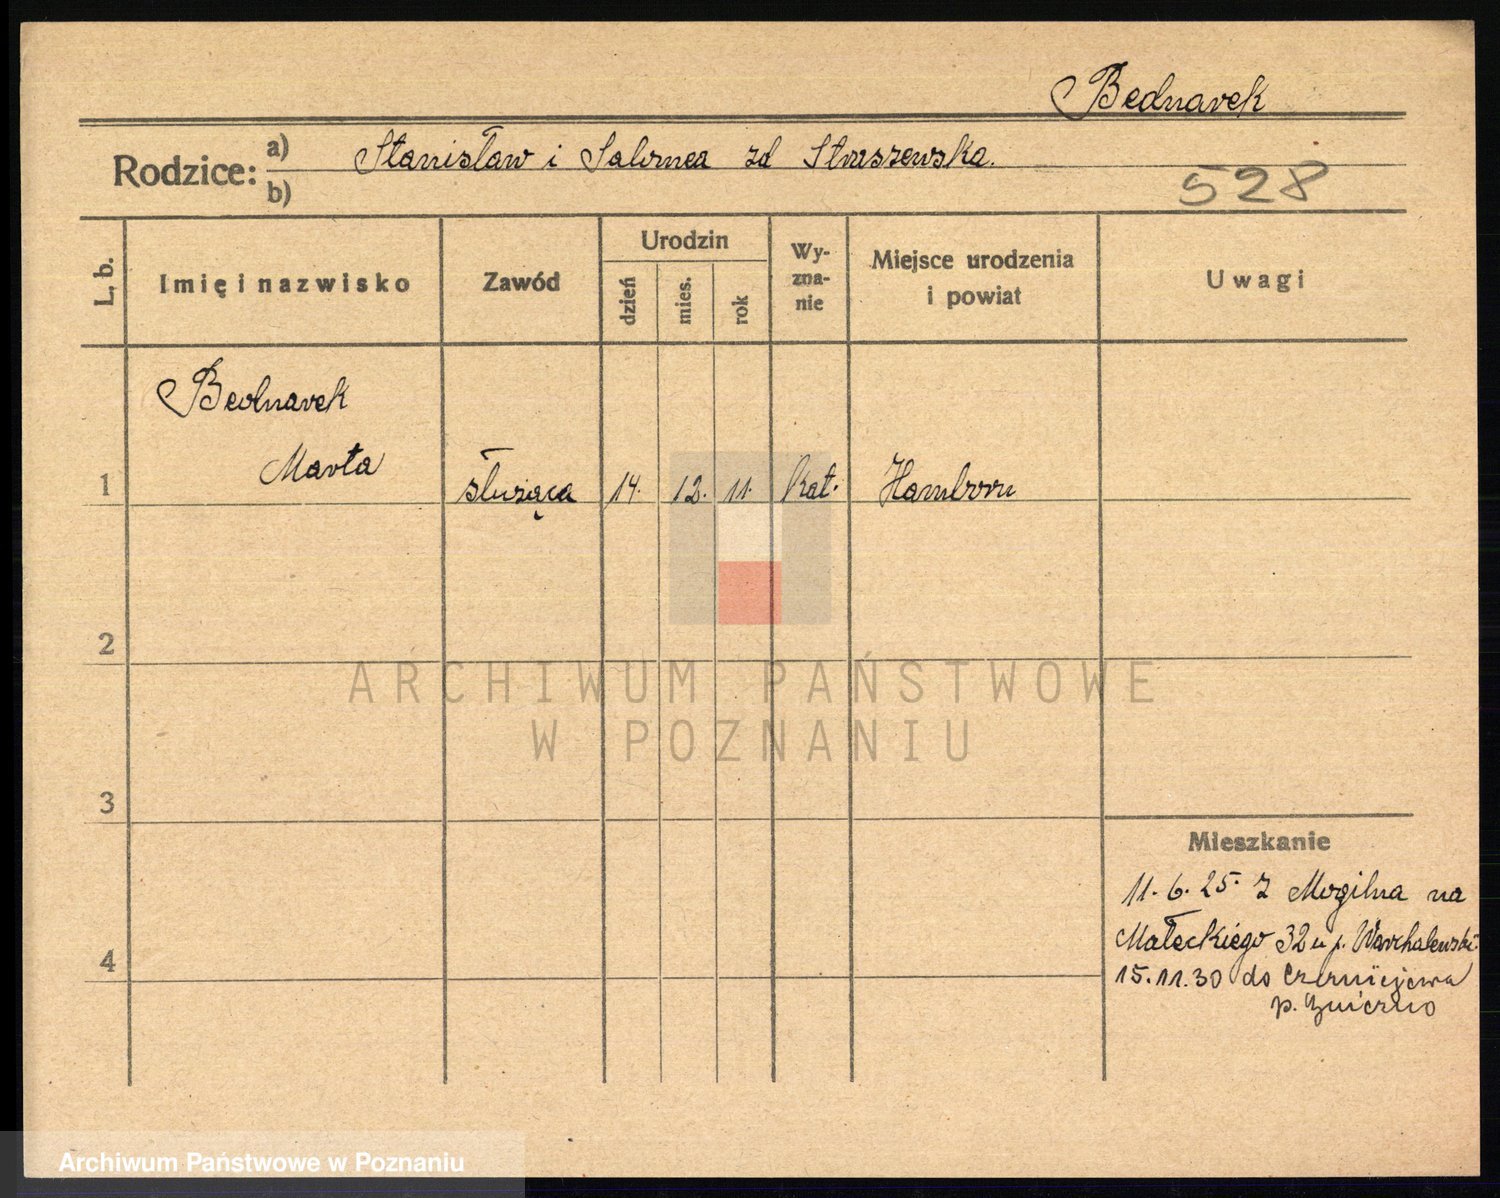 Bednarek
Rodzice: a) Stanisław i Salomea zd Straszewska.
b)
528
L. b.
Imię i nazwisko
Zawód
Urodzin
dzień
mies.
rok
Wy-
zna-
nie
Miejsce urodzenia
i powiat
Uwagi
Bednarek
Marta
1 służąca 14. 12. 11. kat. Hamborn
2
3
4
Mieszkanie
11. 6. 25. z Mogilna na
Małeckiego 32 u p. Warchalewski
15.11.30 do Czerniejewa
p. Gniezno
ARCHIWUM PAŃSTWOWE
W POZNANIU
Archiwum Państwowe w Poznaniu